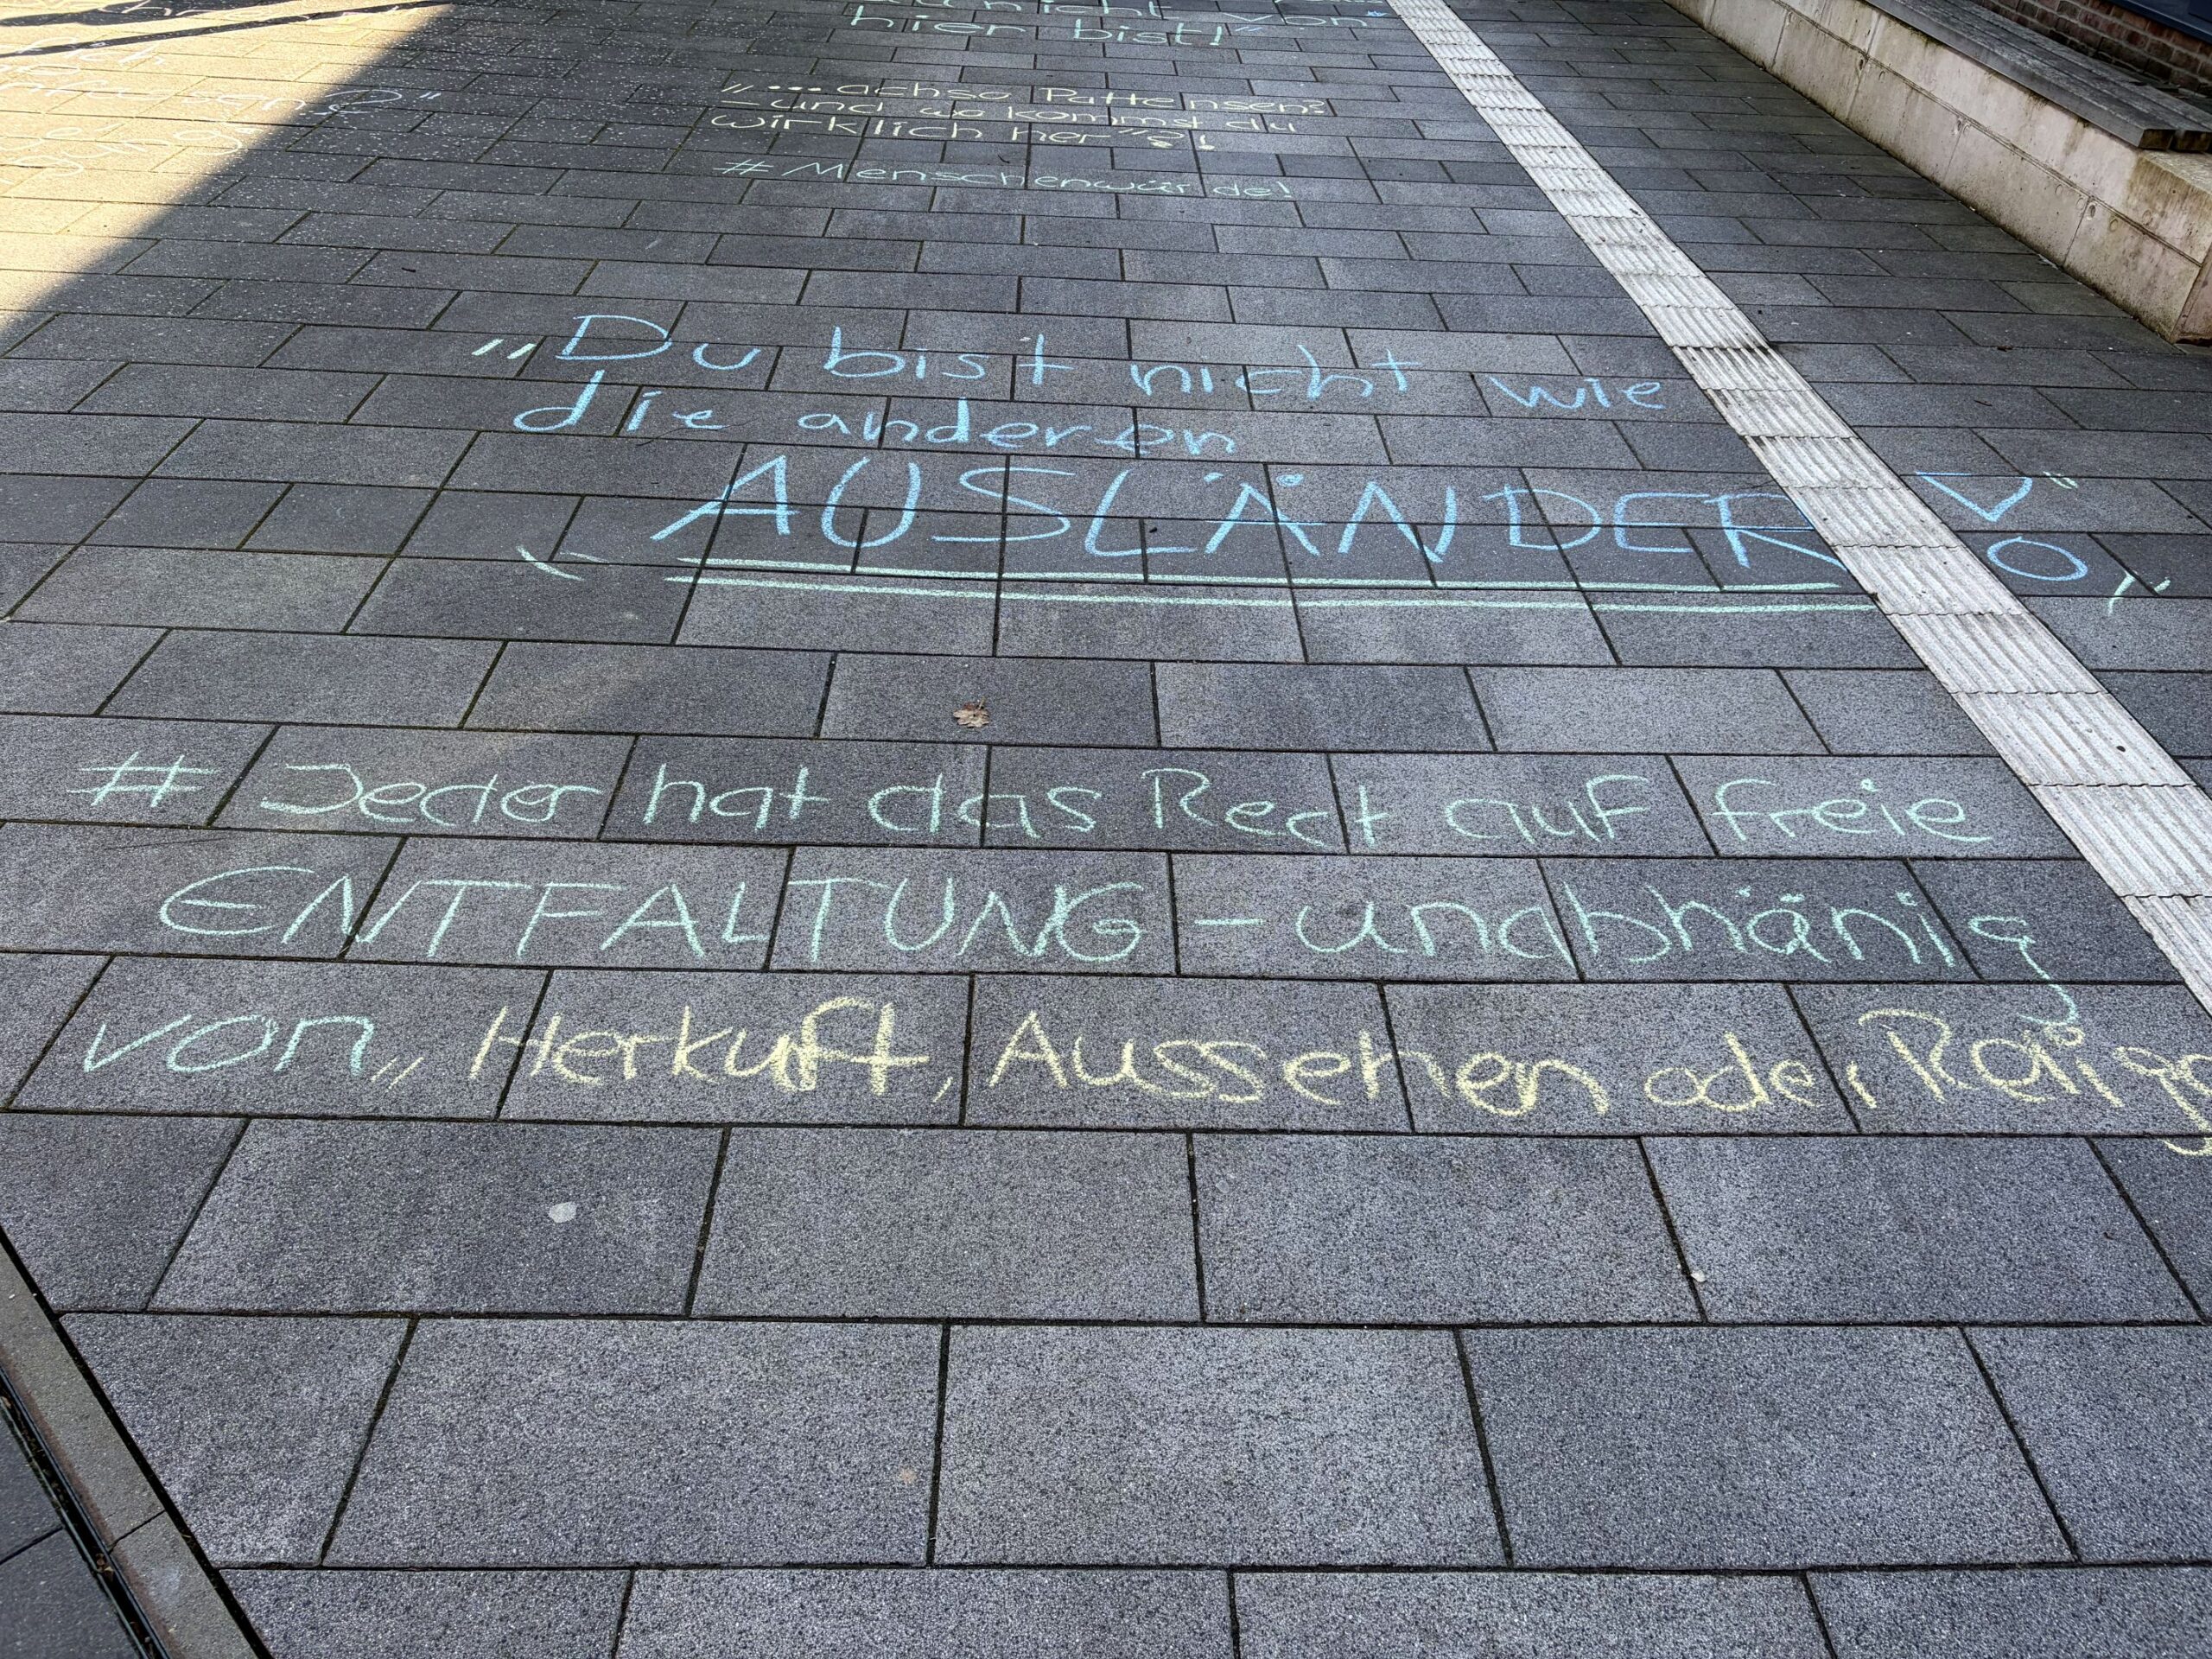 nicht von
hier bist!“
„... achso Pattensen?
- und wo kommst du
wirklich her“?!
#Menschenwürde!
„Du bist nicht wie
die anderen
AUSLÄNDER!“
# Jeder hat das Recht auf freie
ENTFALTUNG - unabhänig
von „Herkuft, Aussehen oder Relig